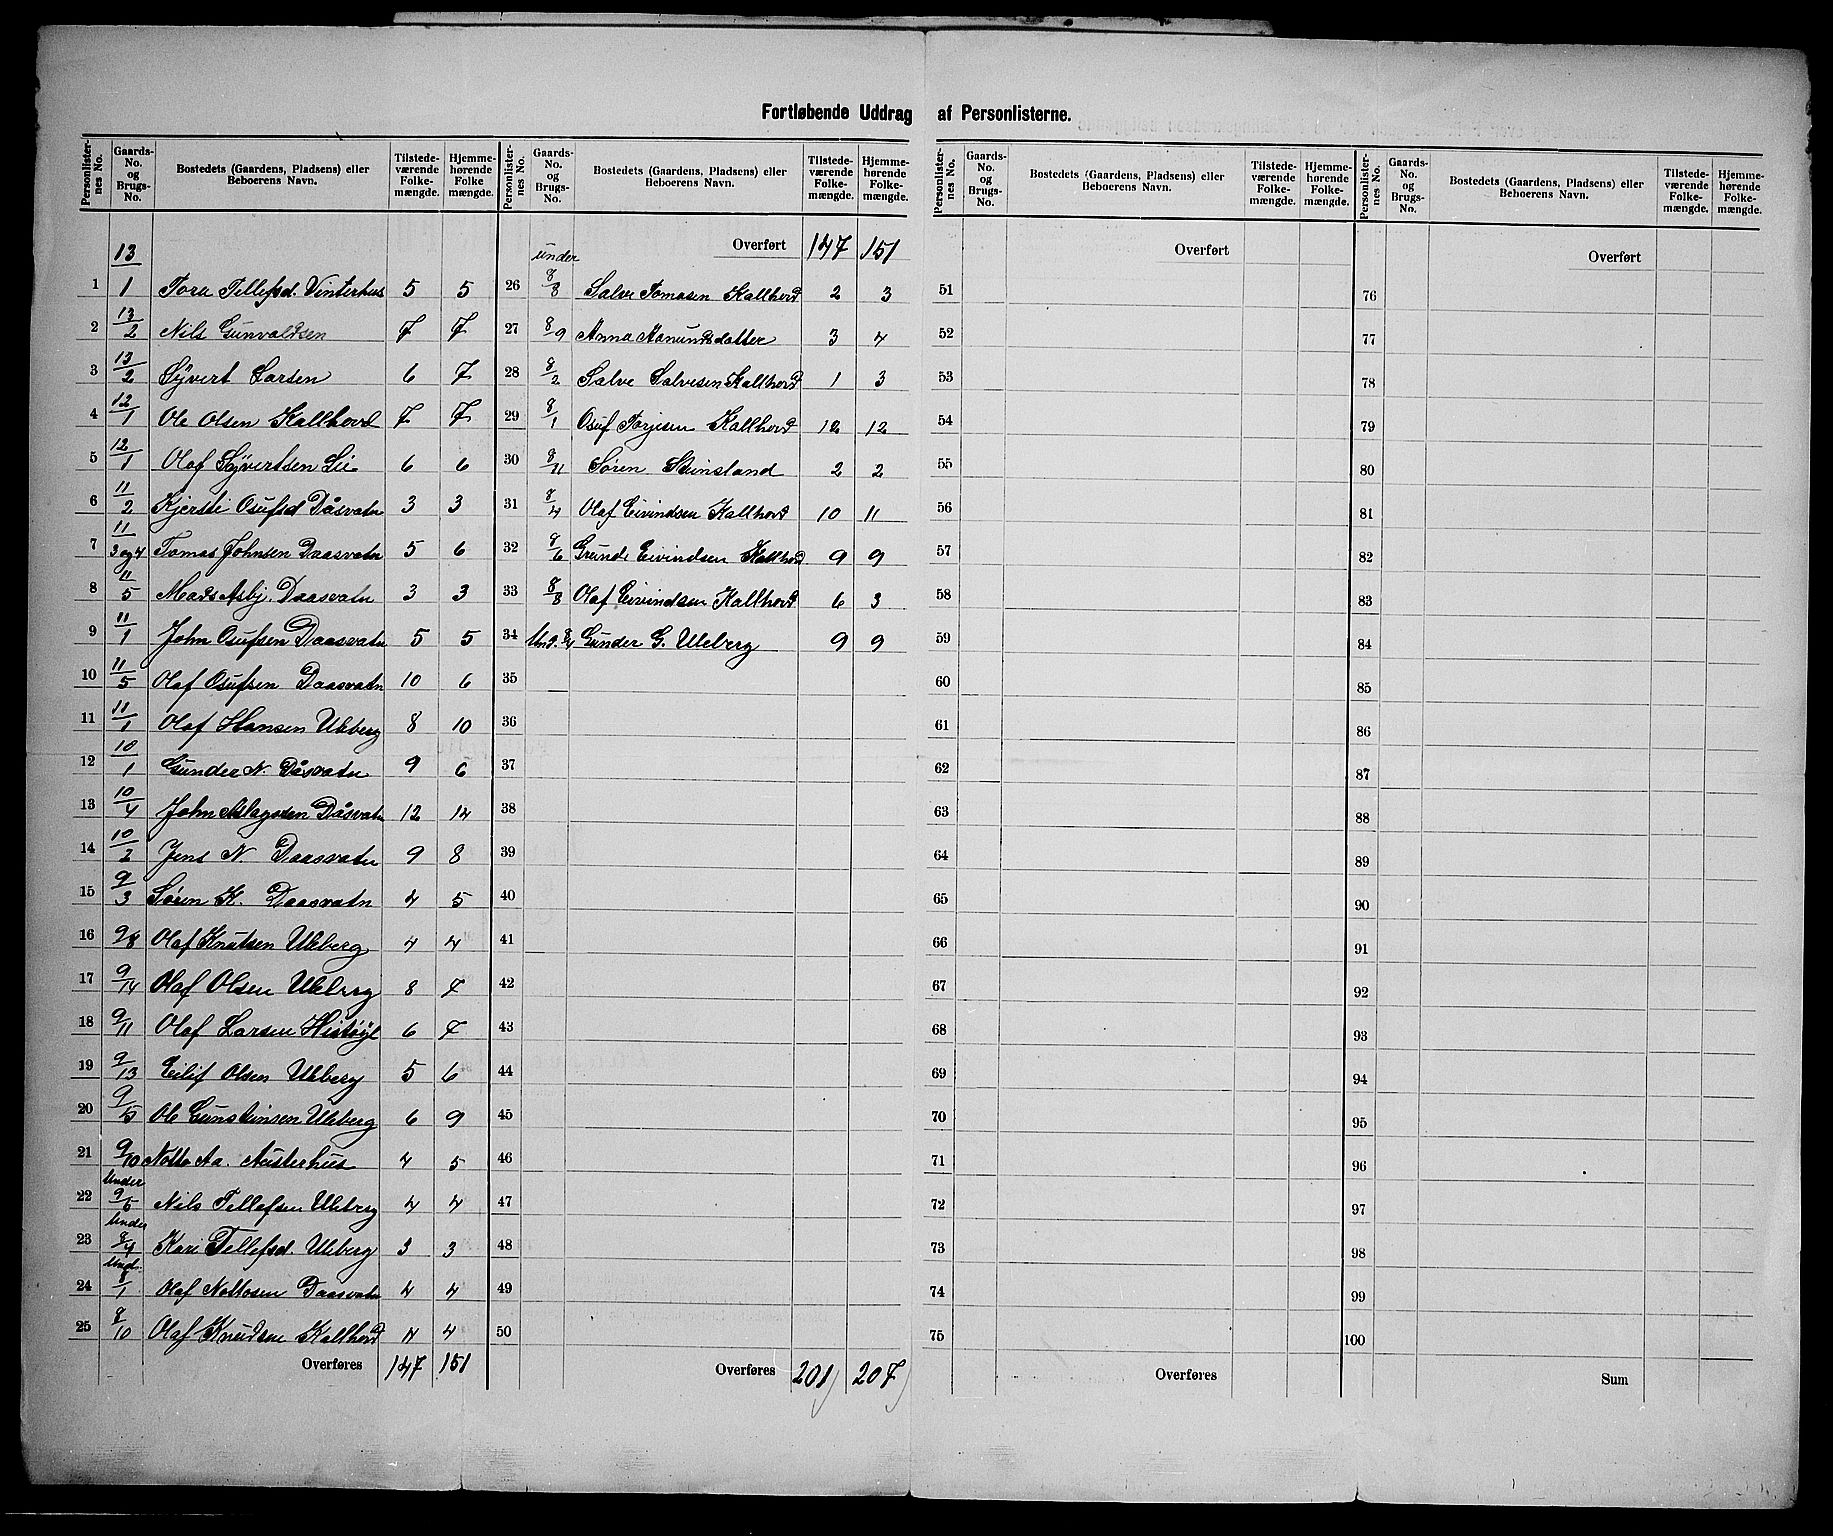 Fortløbende Uddrag af Personlisterne.
Personlister-nes No. | Gaards-No. og Brugs-No. | Bostedets (Gaardens, Pladsens) eller Beboerens Navn. | Tilstede-værende Folke-mængde. | Hjemme-hørende Folke mængde.
1 13/1 Tora Tellefsd. Vinterhus 5 5
2 13/2 Nils Gunvaldsen 7 7
3 13/2 Syvert Larsen 6 7
4 12/1 Ole Olsen Kallhovd 7 7
5 12/1 Olaf Syvertsen Lie 6 6
6 11/2 Kjersti Osufsd Dåsvatn 3 3
7 11/3 og 4 Tomas Johnsen Daasvatn 5 6
8 11/5 Mads Asbj. Daasvatn 3 3
9 11/1 John Osufsen Daasvatn 5 5
10 11/5 Olaf Osufsen Daasvatn 10 6
11 11/1 Olaf Hansen Uleberg 8 10
12 10/1 Gunder N. Dåsvatn 9 6
13 10/4 John Aslagsen Dåsvatn 12 14
14 10/2 Jens N Daasvatn 9 8
15 9/3 Søren K. Daasvatn 4 5
16 9/8 Olaf Knutsen Uleberg 4 4
17 9/14 Olaf Olsen Uleberg 8 7
18 9/11 Olaf Larsen Histøyl 6 7
19 9/13 Eilif Olsen Uleberg 5 6
20 9/5 Ole Gunsteinsen Uleberg 6 9
21 9/10 Notto Aa. Austerhus 4 5
22 Under 9/5 Nils Tellefsen Uleberg 4 4
23 Under 9/4 Kari Tellefsd. Uleberg 3 3
24 Und. 8/1 Olaf Nottosen Daasvatn 4 4
25 8/10 Olaf Knudsen Kallhovd 4 4
Overføres 147 151
Personlister-nes No. | Gaards-No. og Brugs-No. | Bostedets (Gaardens, Pladsens) eller Beboerens Navn. | Tilstede-værende Folke-mængde. | Hjemme-hørende Folke-mængde.
Overført 147 151
26 under 8/8 Salve Tomasen Kallhovd 2 3
27 8/9 Anna Aanundsdatter 3 4
28 8/2 Salve Salvesen Kallhovd 1 3
29 8/1 Osuf Torjesen Kallhovd 12 12
30 8/11 Søren Steinsland 2 2
31 8/4 Olaf Eivindsen Kallhovd 10 11
32 8/6 Grunde Eivindsen Kallhovd 9 9
33 8/8 Olaf Eivindsen Kallhovd 6 3
34 Und. 8/4 Gunder G. Uleberg 9 9
35
36
37
38
39
40
41
42
43
44
45
46
47
48
49
50
Overføres 201 207
Personlister-nes No. | Gaards-No. og Brugs-No. | Bostedets (Gaardens, Pladsens) eller Beboerens Navn. | Tilstede-værende Folke-mængde. | Hjemme-hørende Folke-mængde.
Overført
51
52
53
54
55
56
57
58
59
60
61
62
63
64
65
66
67
68
69
70
71
72
73
74
75
Overføres
Personlister-nes No. | Gaards-No. og Brugs-No. | Bostedets (Gaardens, Pladsens) eller Beboerens Navn. | Tilstede-værende Folke-mængde. | Hjemme-hørende Folke-mængde.
Overført
76
77
78
79
80
81
82
83
84
85
86
87
88
89
90
91
92
93
94
95
96
97
98
99
100
Sum